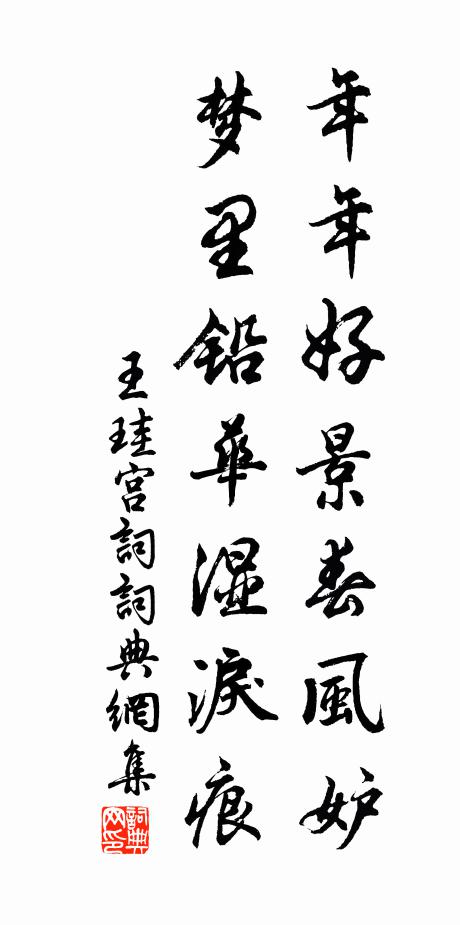 年年好景春風妒
梦里鉛華濕淚痕
王珪宮詞詞典網集
詞典网印